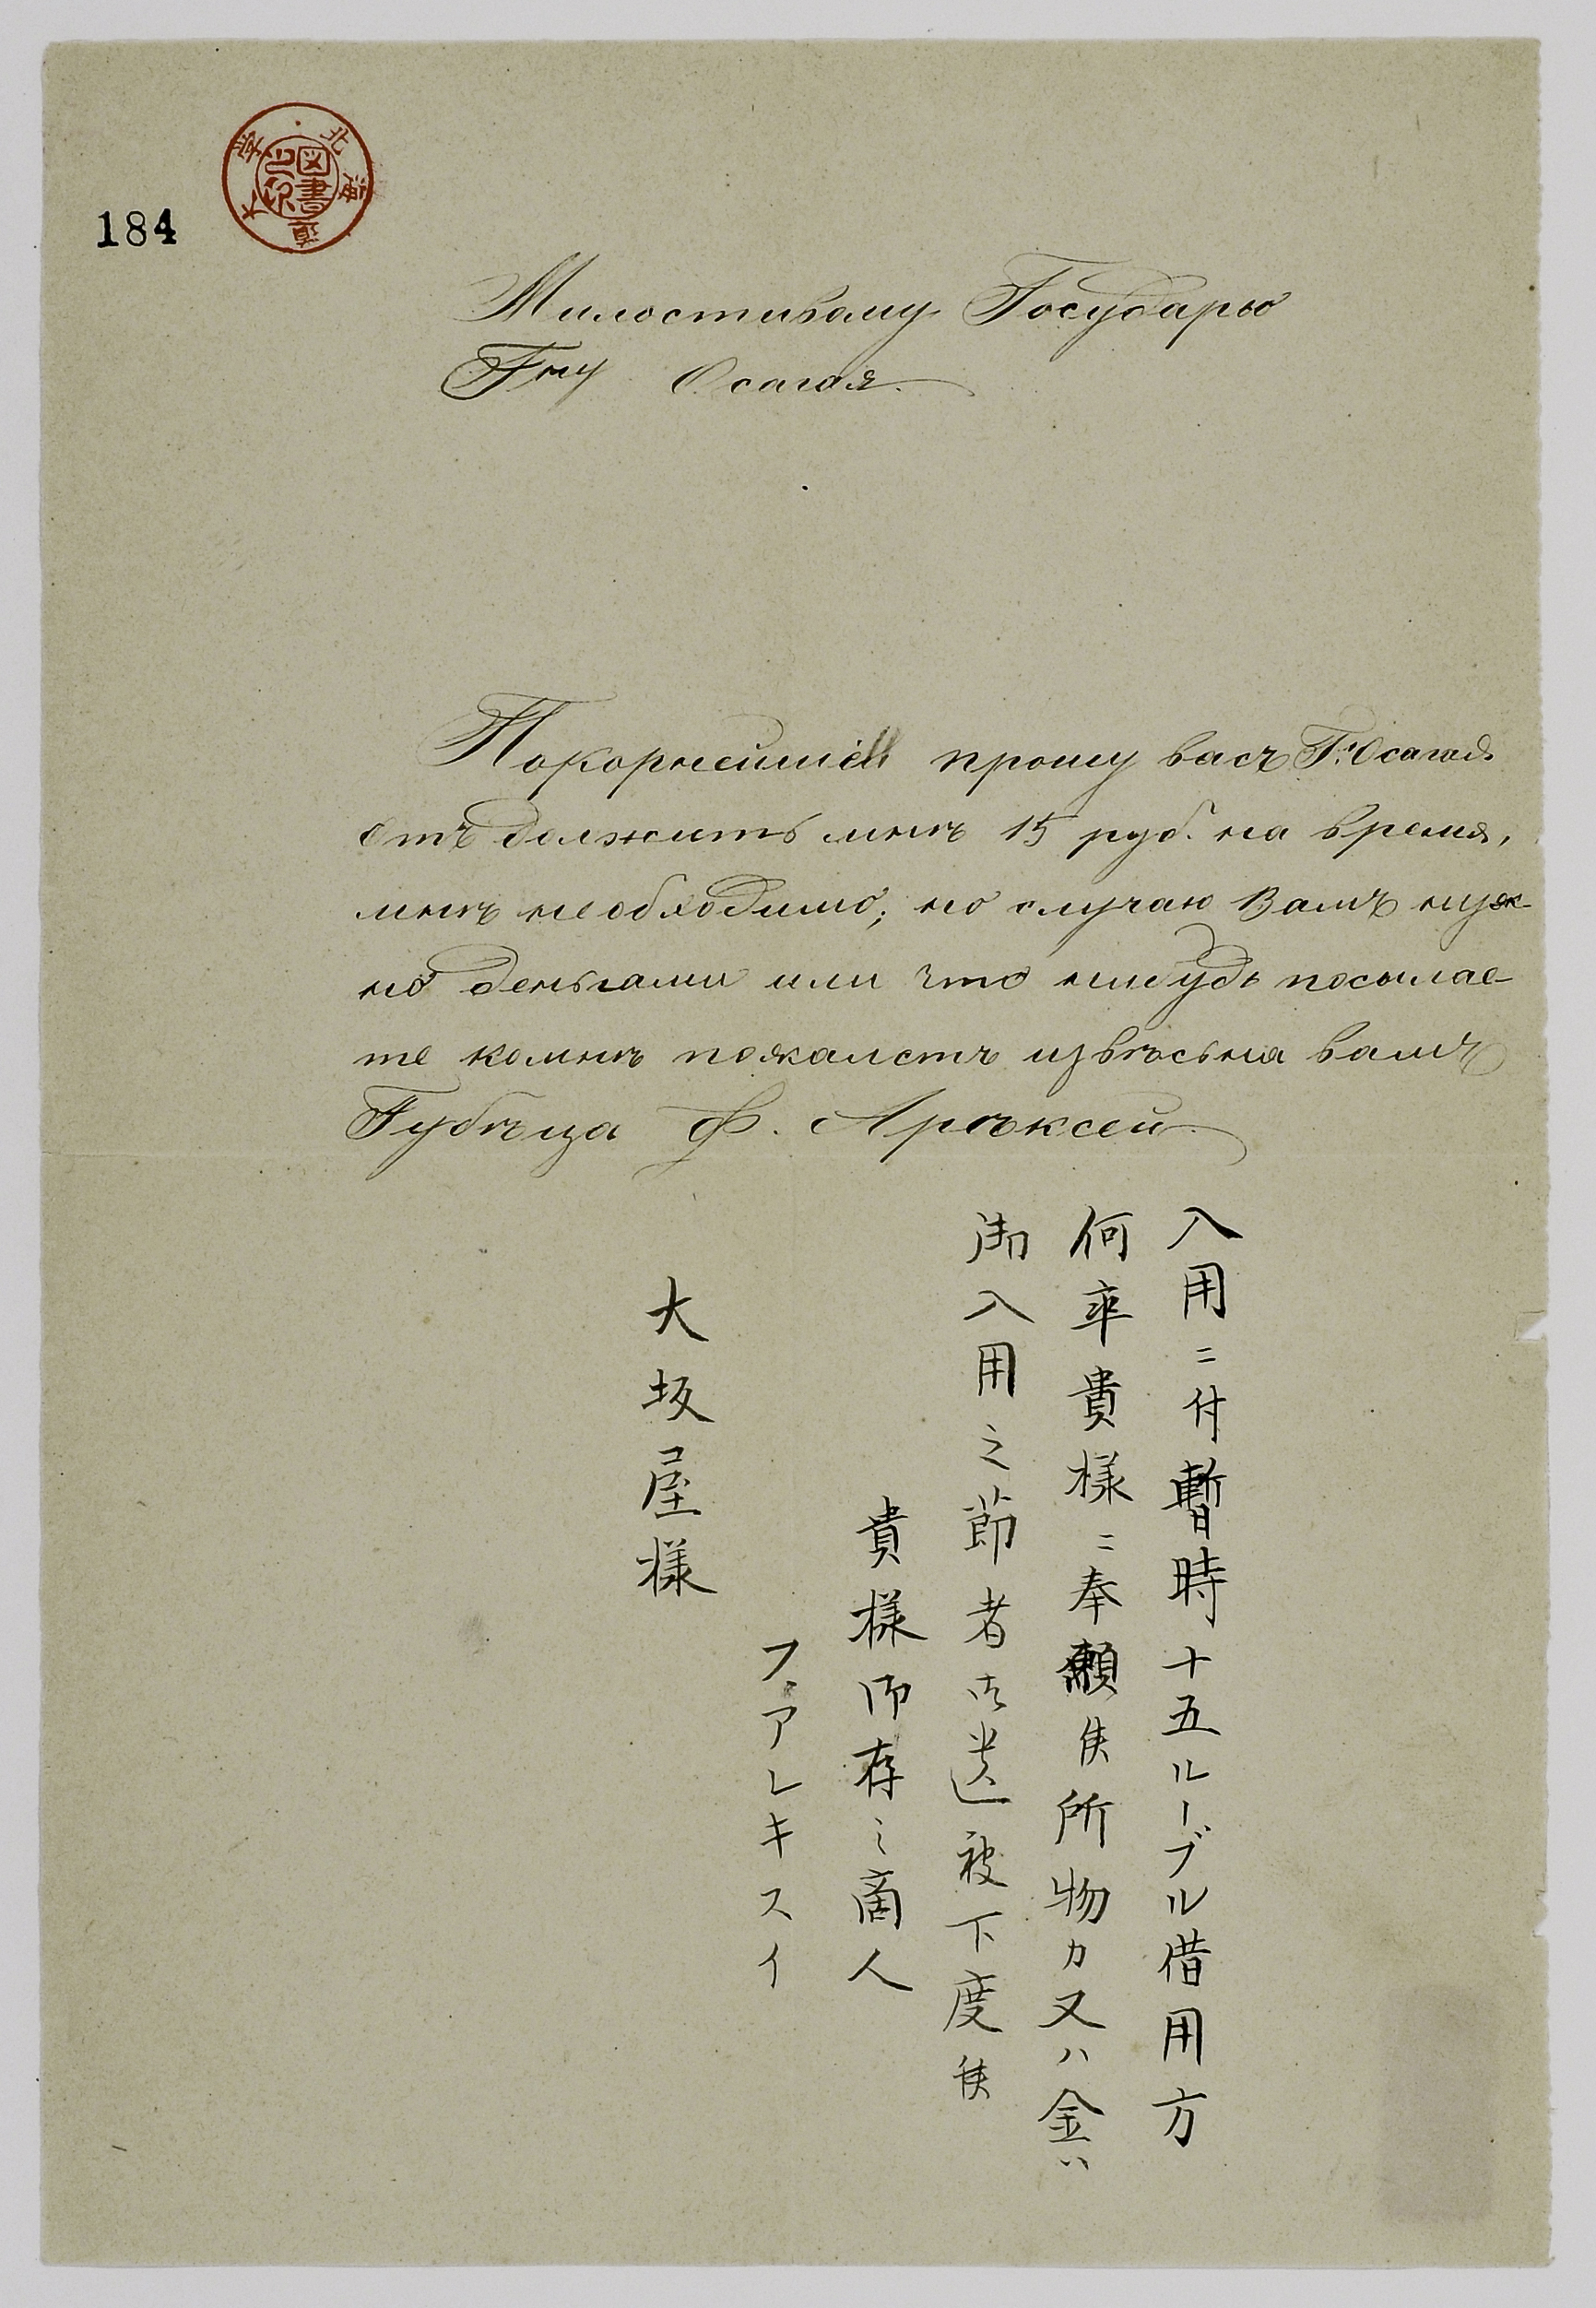 184
北海道大学
図書之印
Милостивому Государю
Гну Осагоя.
Покорнейшій прошу васъ Г. Осагоя
отъ должить мнѣ 15 руб. на время,
мнѣ необходимо; но случаю Вамъ нуж-
но деньгами или что нибудь посылае-
те комнѣ пожалстъ извѣсьна вамъ
Ф.
入用ニ付暫時十五ルーブル借用方
何卒貴様ニ奉願候所物カ又ハ金ハ
御入用之節者御送被下度候
貴様御存之商人
フ、アレキスイ
大坂屋様